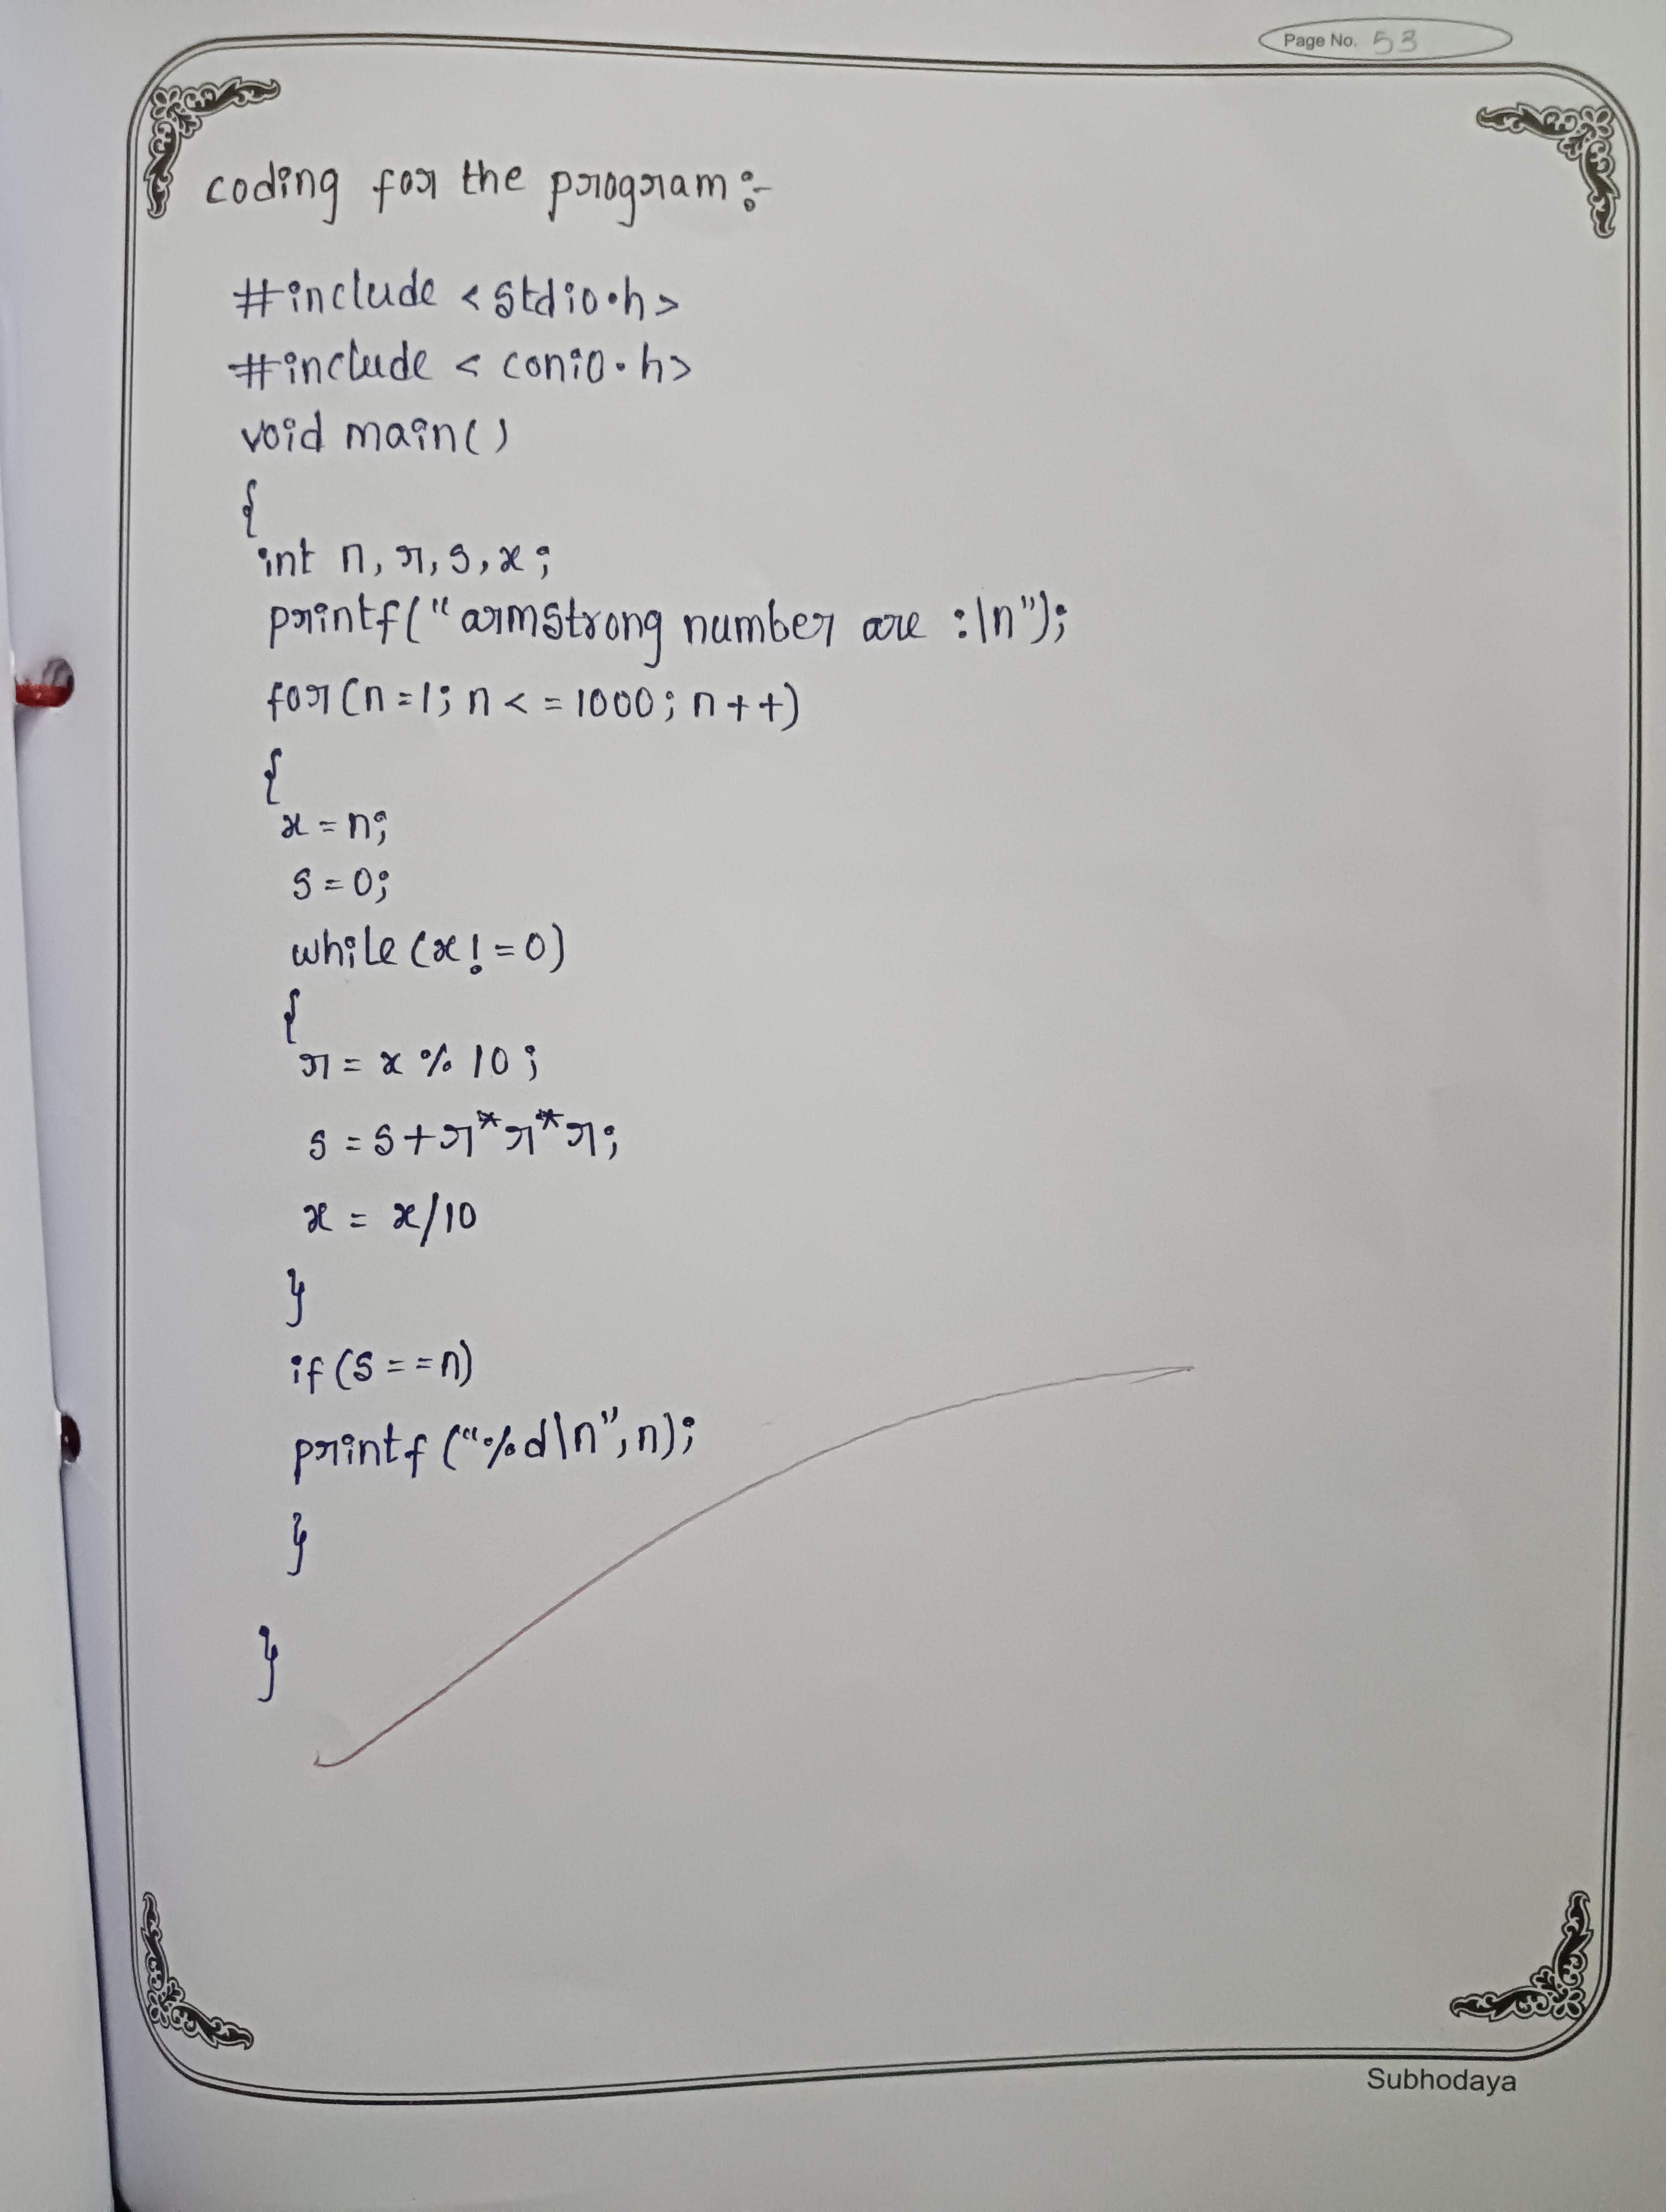 Page No. 53
coding for the program :-
#include <stdio.h>
#include < conio.h>
void main()
{
int n, r, s, x;
printf("armstrong number are :\n");
for (n=1; n <= 1000; n++)
{
x = n;
s = 0;
while (x! = 0)
{
r = x % 10;
s = s + r*r*r;
x = x/10
}
if (s == n)
printf ("%d\n", n);
}
}
Subhodaya